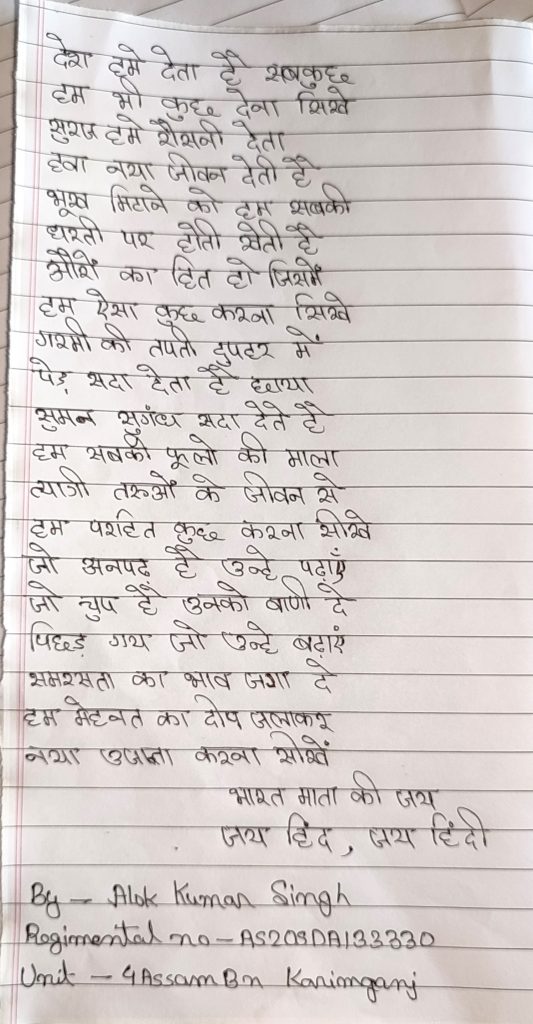 देश हमे देता है सबकुछ
हम भी कुछ देना सिखे
सुरज हमे रौसनी देता
हवा नया जीवन देती है
भूख मिटाने को हम सबकी
धरती पर होती खेती है
औरों का हित हो जिसमें
हम ऐसा कुछ करना सिखे
गरमी की तपती दुपहर में
पेड़ सदा देता है छाया
सुमन सुगंध सदा देते है
हम सबको फूलो की माला
त्यागी तरुओं के जीवन से
हम परहित कुछ करना सीखे
जो अनपढ़ है उन्हे पढ़ाएं
जो चुप है उनको वाणी दे
पिछड़ गय जो उन्हे बढ़ाएं
समरसता का भाव जगा दे
हम मेहनत का दीप जलाकर
नया उजाला करना सीखें
भारत माता की जय
जय हिंद, जय हिंदी
By - Alok Kumar Singh
Regimental no - AS20SDA133330
Unit - 4 Assam Bn Karimganj